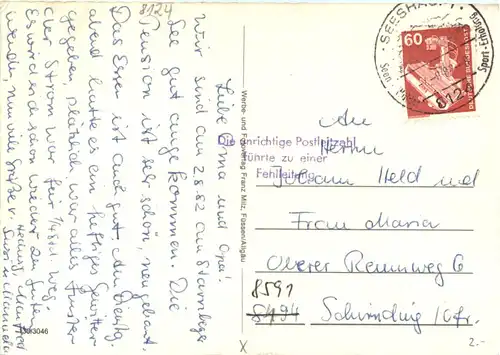 8124
Liebe Oma und Opa!
Wir sind am 2.8.82 am Starnberger
See gut angekommen. Die
Pension ist sehr schön, neu gebaut.
Das Essen ist auch gut. Am Dienstg.
abend hatte es ein heftiges Gewitter
gegeben, plötzlich war alles finster
der Strom war für 1/4 Std. weg.
Es wird sich schon wieder zum Guten
wenden, nun viele Grüße v.
Hedwig, Manfred
Susi u. Manuela
38/3046
Werbe und Fotoverlag Franz Milz, Füssen/Allgäu
SEESHAUPT
Sport - Erholung
8124
60
DEUTSCHE BUNDESPOST
Die unrichtige Postleitzahl
führte zu einer
Fehlleitung
An
Herrn
Johann Held und
Frau Maria
Oberer Rennweg 6
8591
8494
Schirnding /Ofr.
X
2.-